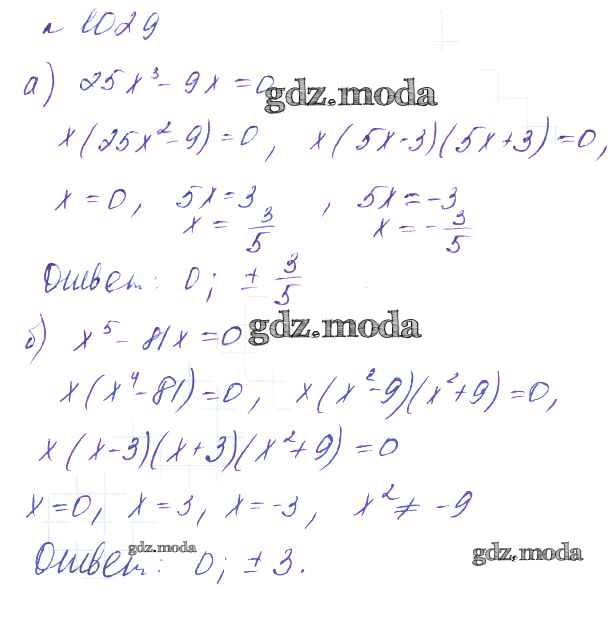 № 1029
а) 25x³ - 9x = 0
gdz.moda
x(25x² - 9) = 0, x(5x - 3)(5x + 3) = 0,
x = 0, 5x = 3, 5x = -3
x = 3/5 x = -3/5
Ответ: 0; ± 3/5
б) x⁵ - 81x = 0
gdz.moda
x(x⁴ - 81) = 0, x(x² - 9)(x² + 9) = 0,
x(x - 3)(x + 3)(x² + 9) = 0
x = 0, x = 3, x = -3, x² ≠ -9
gdz.moda
Ответ: 0; ± 3.
gdz.moda